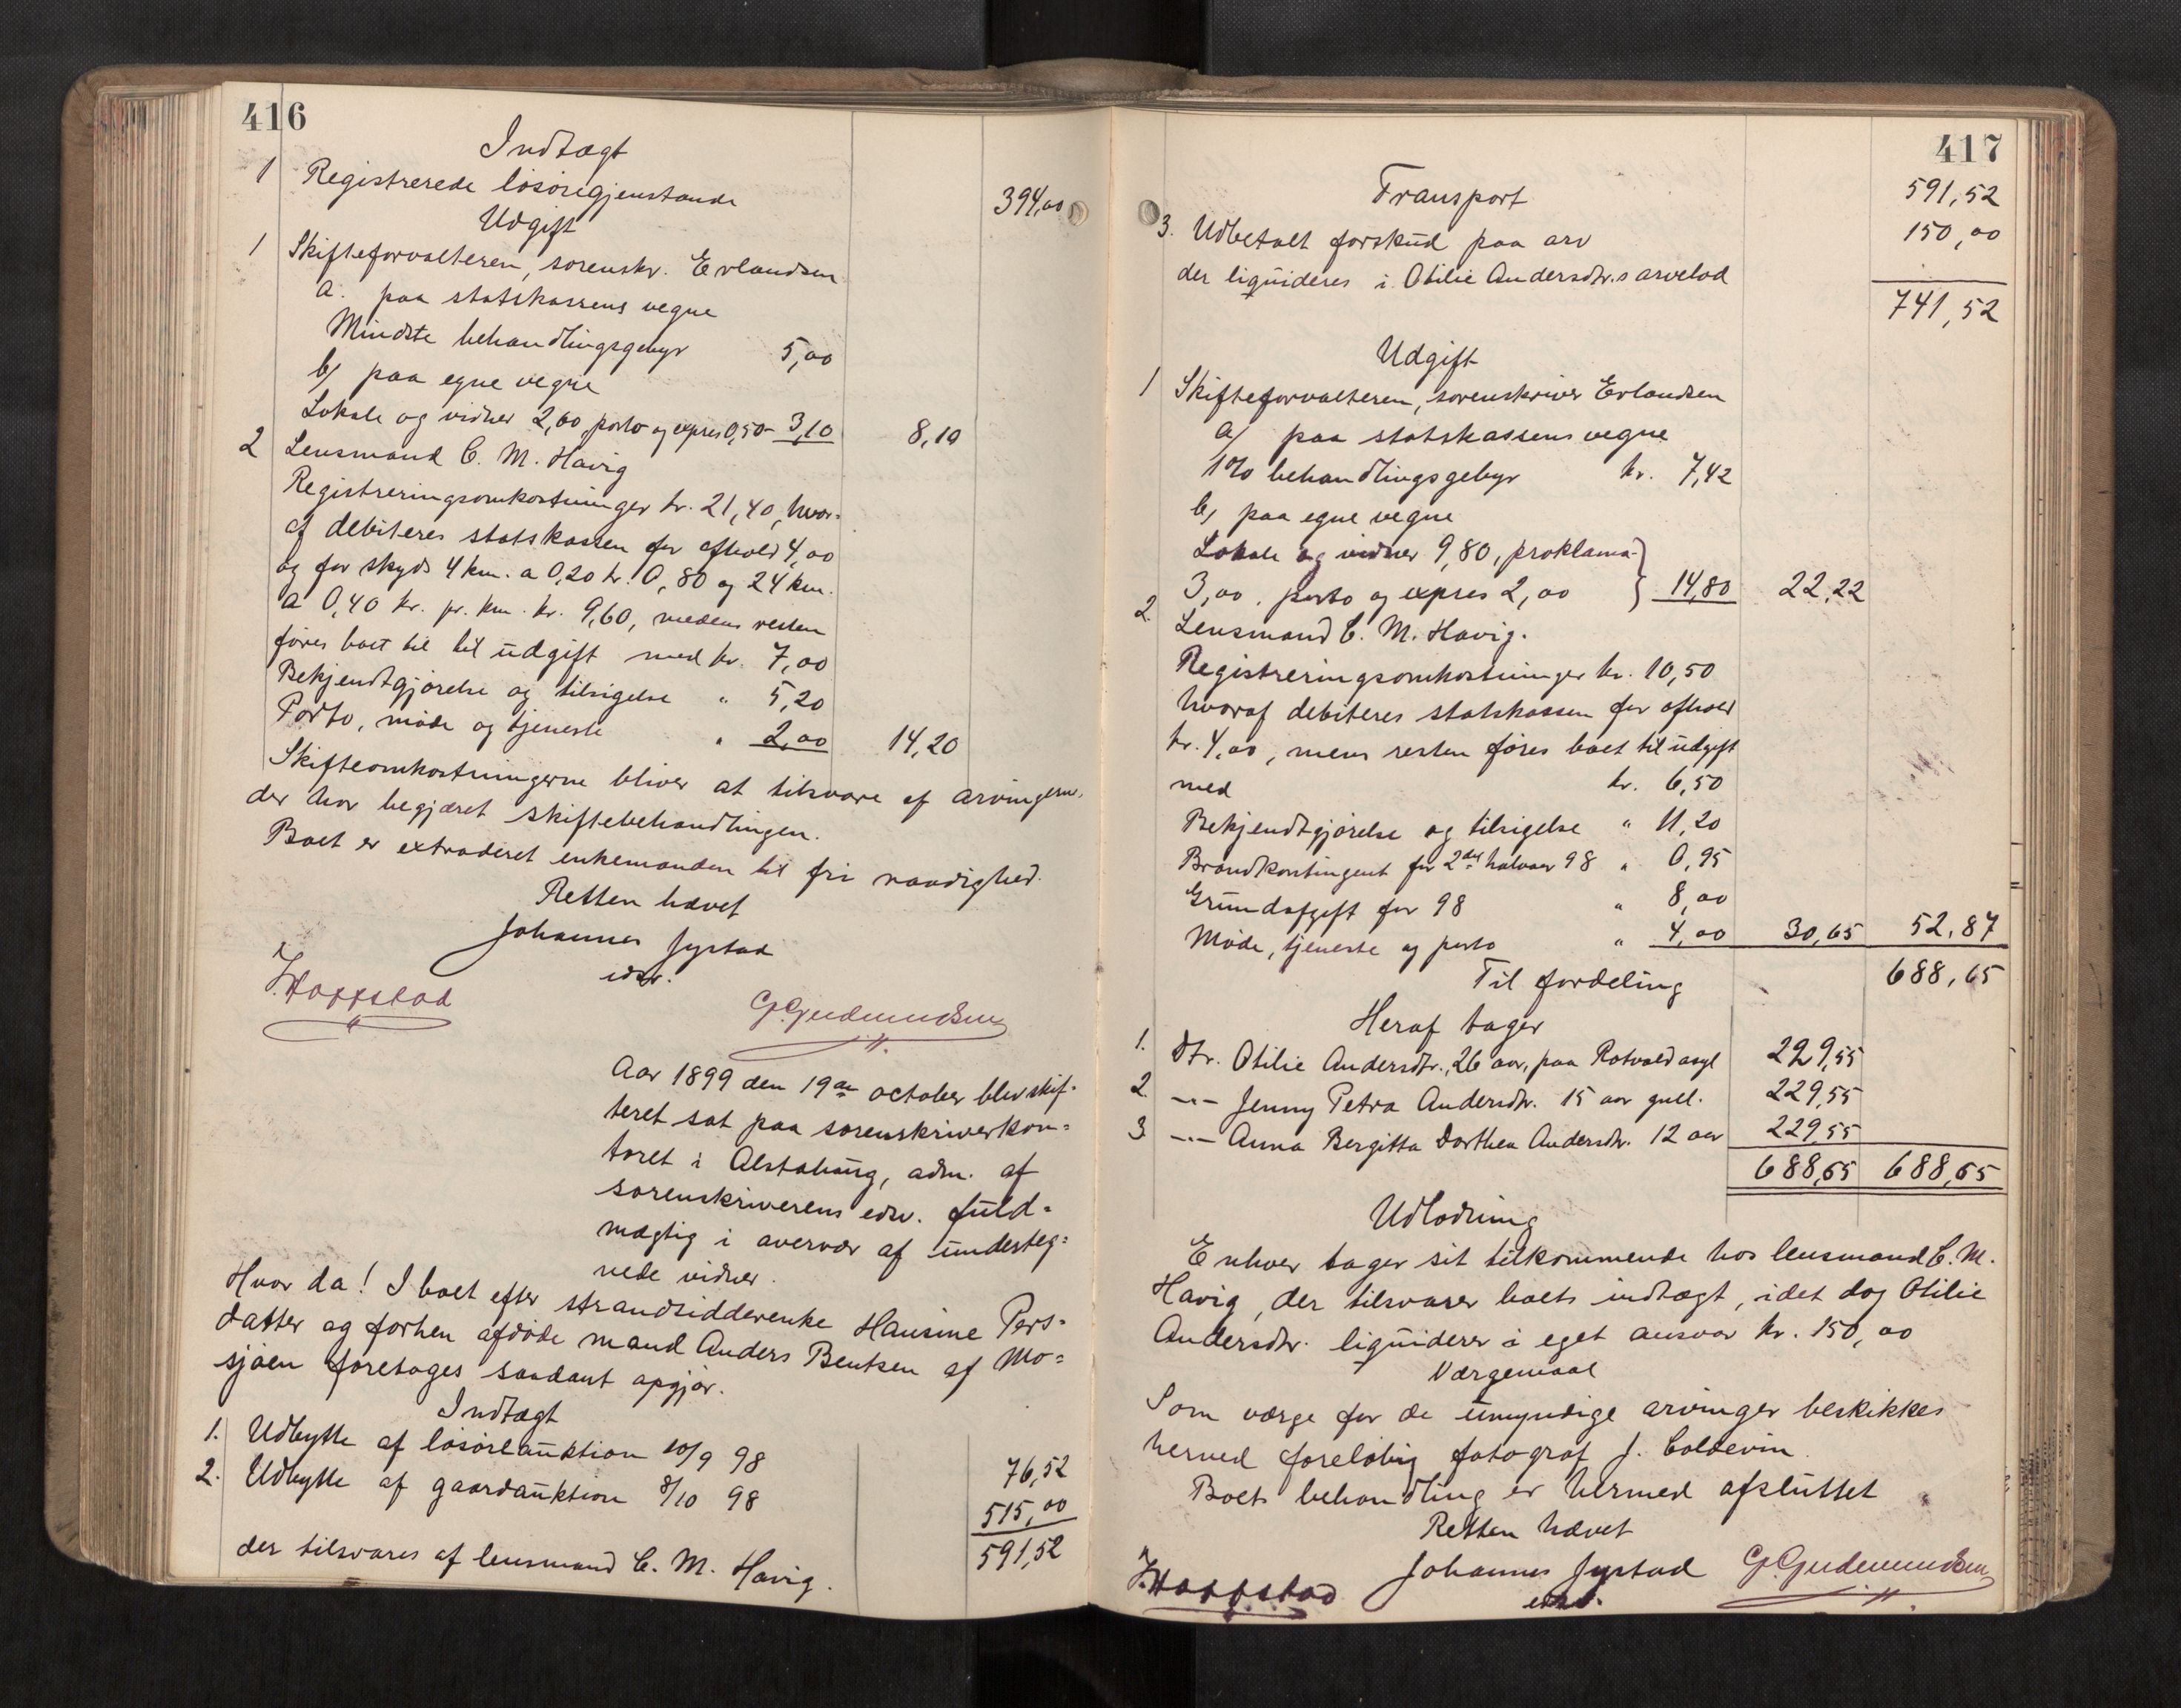 416
Indtægt
1 Registrerede løsøregjenstande 394,00
Udgift
1 Skifteforvalteren, sorenskr. Erlandsen
a. paa statskassens vegne
Mindste behandlingsgebyr 5,00
b) paa egne vegne
Lokale og vidner 2,60 porto og expres 0,50 - 3,10 8,10
2 Lensmand C. M. Havig
Registreringsomkostninger kr. 21,40, hvor-
af debiteres statskassen for afhold 4,00
og for skyds 4 km. a 0,20 kr. 0,80 og 24 km.
a 0,40 kr. pr. km. kr. 9,60, medens resten
føres boet til til udgift med kr. 7,00
Bekjendtgjørelse og tilsigelse " 5,20
Porto, møde og tjeneste " 2,00 14,20
Skifteomkostningerne bliver at tilsvare af arvingerne,
der har begjæret skiftebehandlingen.
Boet er extraderet enkemanden til fri raadighed.
Retten hævet
Johannes Jystad
edsv.
J. Haffstad
G. Gudmundsen
Aar 1899 den 19de october blev skif-
teret sat paa sorenskriverkon-
toret i Alstahaug, adm. af
sorenskriverens edsv. fuld-
mægtig i overvær af underteg-
nede vidner.
Hvor da! I boet efter strandsidderenke Hansine Pers-
datter og forhen afdøde mand Anders Bentsen af Mo-
sjøen foretoges saadant opgjør.
Indtægt
1. Udbytte af løsøreauktion 10/9 98 76,52
2. Udbytte af gaardauktion 8/10 98 515,00
der tilsvares af lensmand C. M. Havig. 591,52
417
Transport 591,52
3. Udbetalt forskud paa arv 150,00
der liquideres i Otilie Andersdtr.s arvelod
741,52
Udgift
1 Skifteforvalteren, sorenskriver Erlandsen
a) paa statskassens vegne
1% behandlingsgebyr kr. 7,42
b) paa egne vegne
Lokale og vidner 9,80, proklama
3,00, porto og expres 2,00 } 14,80 22,22
2. Lensmand C. M. Havig.
Registreringsomkostninger kr. 10,50
hvoraf debiteres statskassen for afhold
kr. 4,00, mens resten føres boet til udgift
med kr. 6,50
Bekjendtgjørelse og tilsigelse " 11,20
Brandkontingent for 2det halvaar 98 " 0,95
Grundafgift for 98 " 8,00
Møde, tjeneste og porto " 4,00 30,65 52,87
Til fordeling 688,65
Heraf tager
1. Dtr. Otilie Andersdtr., 26 aar, paa Rotvold asyl 229,55
2. -"- Jenny Petra Andersdtr. 15 aar gull. 229,55
3 -"- Anna Bergitta Dorthea Andersdtr. 12 aar 229,55
688,65 688,65
Udlodning
Enhver tager sit tilkommende hos lensmand C. M.
Havig, der tilsvarer boets indtægt, idet dog Otilie
Andersdtr. liquiderer i eget ansvar kr. 150,00
Værgemaal
Som værge for de umyndige arvinger beskikkes
herved foreløbig fotograf J. Coldevin
Boets behandling er hermed afsluttet
Retten hævet
J. Haffstad Johannes Jystad G. Gudmundsen
edsv.